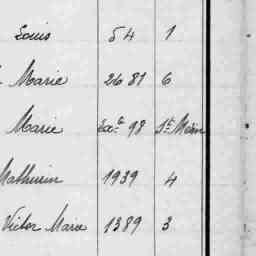 Louis 54 1
Marie 2681 6
Marie 98
Mathurin 1939 4
Victor Marie 1389 3